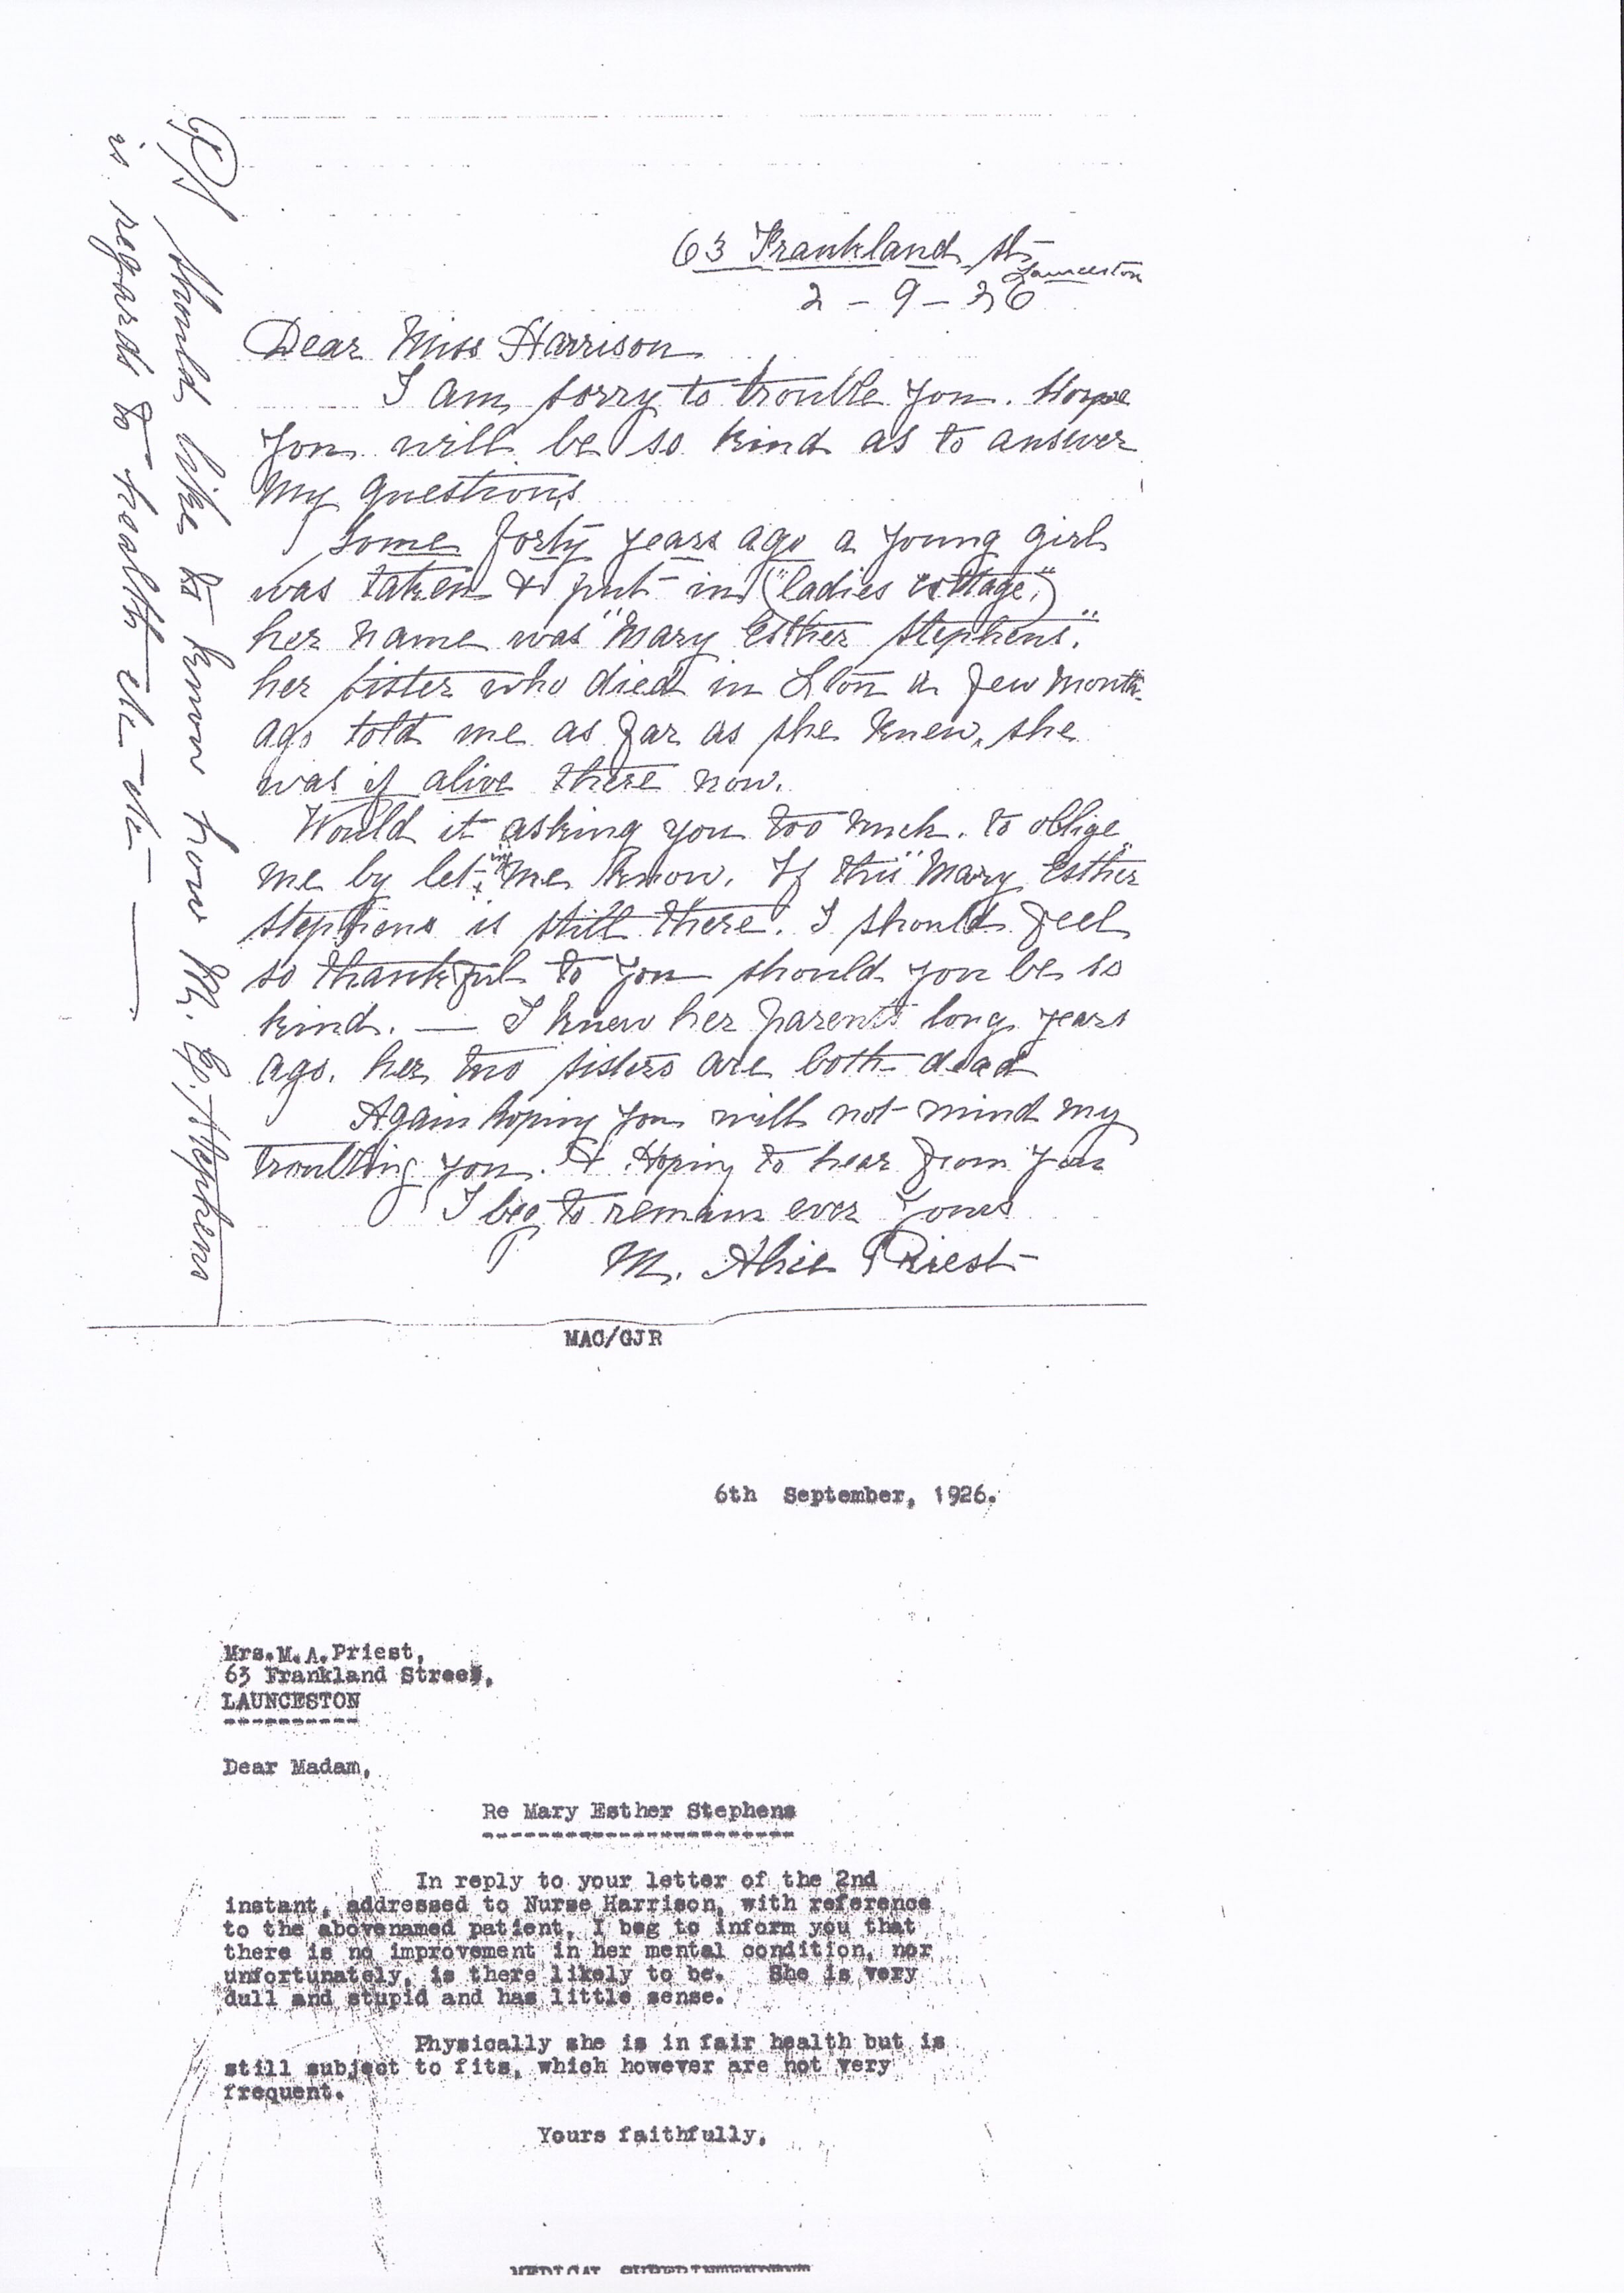 63 Frankland St
Launceston
2 - 9 - 26
Dear Miss Harrison
I am sorry to trouble you. Hope
you will be so kind as to answer
my questions
Some forty years ago a young girl
was taken & put in ("ladies cottage",)
her name was "Mary Esther Stephens".
her sister who died in L'ton a few months
ago told me as far as she knew, she
was if alive there now.
Would it asking you too much. to oblige
me by letting me know. If this "Mary Esther"
Stephens is still there. I should feel
so thankful to you should you be so
kind. — I knew her parents long years
ago. her two sisters are both dead
Again hoping you will not mind my
troubling you. & Hoping to hear from you
I beg to remain ever yours
M. Alice Priest
PS should like to know how M. E. Stephens
is regards to health etc - etc —
MAC/GJR
6th September, 1926.
Mrs.M.A.Priest,
63 Frankland Street,
LAUNCESTON
Dear Madam,
Re Mary Esther Stephens
In reply to your letter of the 2nd
instant, addressed to Nurse Harrison, with reference
to the abovenamed patient, I beg to inform you that
there is no improvement in her mental condition, nor
unfortunately, is there likely to be. She is very
dull and stupid and has little sense.
Physically she is in fair health but is
still subject to fits, which however are not very
frequent.
Yours faithfully,
MEDICAL SUPERINTENDENT